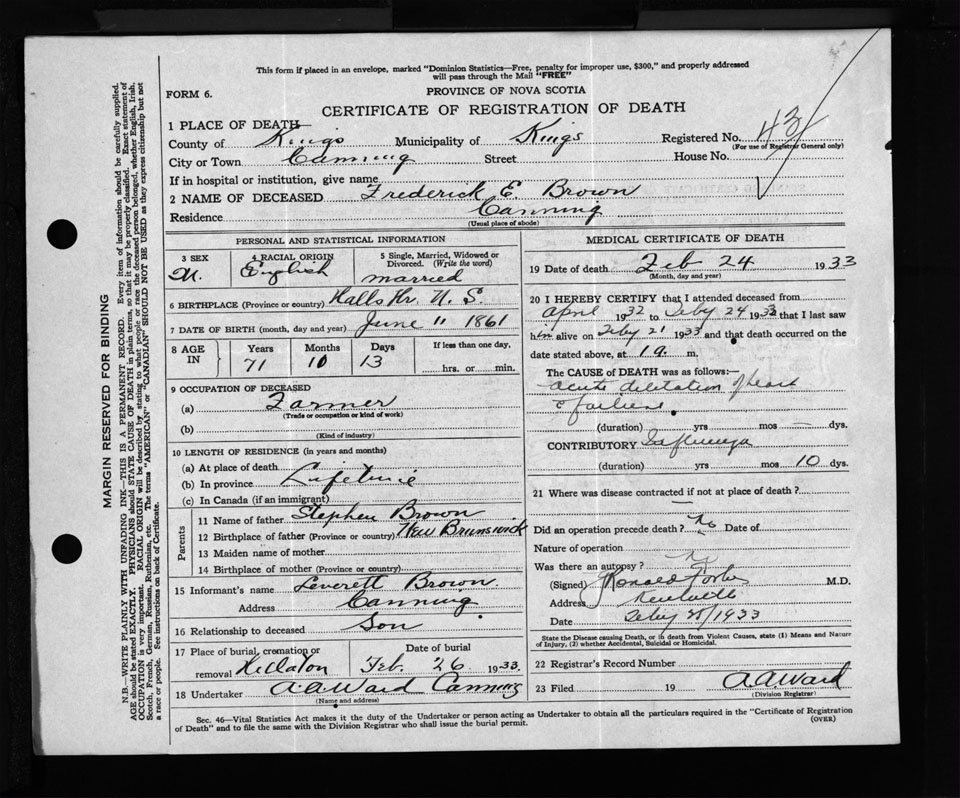 This form if placed in an envelope, marked "Dominion Statistics—Free, penalty for improper use, $300," and properly addressed
will pass through the Mail "FREE"
FORM 6.
PROVINCE OF NOVA SCOTIA
CERTIFICATE OF REGISTRATION OF DEATH
1 PLACE OF DEATH
County of Kings Municipality of Kings Registered No. 43
(For use of Registrar General only)
City or Town Canning Street House No.
If in hospital or institution, give name
2 NAME OF DECEASED Frederick E. Brown
Residence Canning
(Usual place of abode)
PERSONAL AND STATISTICAL INFORMATION
3 SEX 4 RACIAL ORIGIN 5 Single, Married, Widowed or
Divorced. (Write the word)
M. English married
6 BIRTHPLACE (Province or country) Halls Hr. N. S.
7 DATE OF BIRTH (month, day and year) June 11 1861
8 AGE IN Years Months Days If less than one day,
71 10 13 hrs. or min.
9 OCCUPATION OF DECEASED
(a) Farmer
(Trade or occupation or kind of work)
(b)
(Kind of industry)
10 LENGTH OF RESIDENCE (in years and months)
(a) At place of death
(b) In province Lifetime
(c) In Canada (if an immigrant)
Parents
11 Name of father Stephen Brown
12 Birthplace of father (Province or country) New Brunswick
13 Maiden name of mother
14 Birthplace of mother (Province or country)
15 Informant's name Leverett Brown
Address Canning
16 Relationship to deceased Son
17 Place of burial, cremation or removal Date of burial
Feb. 26 1933
18 Undertaker A.A. Ward Canning
(Name and address)
MEDICAL CERTIFICATE OF DEATH
19 Date of death Feb 24 1933
(Month, day and year)
20 I HEREBY CERTIFY that I attended deceased from
April 1932 to Feby 24 1933 that I last saw
him alive on Feby 21 1933 and that death occurred on
date stated above, at m.
The CAUSE of DEATH was as follows:—
acute diletation of heart
(duration) yrs mos — dys.
CONTRIBUTORY Influenza
(duration) yrs mos 10 dys.
21 Where was disease contracted if not at place of death?
Did an operation precede death? No Date of
Nature of operation
Was there an autopsy? No
(Signed) M.D.
Address Kentville
Date Feby /1933
State the Disease causing Death, or in death from Violent Causes, state (1) Means and Nature
of Injury, (2) whether Accidental, Suicidal or Homicidal.
22 Registrar's Record Number
23 Filed 19 A.A. Ward
(Division Registrar)
Sec. 46—Vital Statistics Act makes it the duty of the Undertaker or person acting as Undertaker to obtain all the particulars required in the "Certificate of Registration
of Death" and to file the same with the Division Registrar who shall issue the burial permit. (OVER)
MARGIN RESERVED FOR BINDING
N.B.—WRITE PLAINLY WITH UNFADING INK—THIS IS A PERMANENT RECORD. Every item of information should be carefully supplied.
AGE should be stated EXACTLY. PHYSICIANS should STATE CAUSE OF DEATH in plain terms, so that it may be properly classified. Exact statement of
OCCUPATION is very important. RACIAL ORIGIN will be described by stating to what people or race the deceased person belonged, whether English, Irish,
Scotch, French, German, Russian, Ruthenian, etc. The terms "AMERICAN" or "CANADIAN" SHOULD NOT BE USED as they express citizenship but not
a race or people. See instructions on back of Certificate.